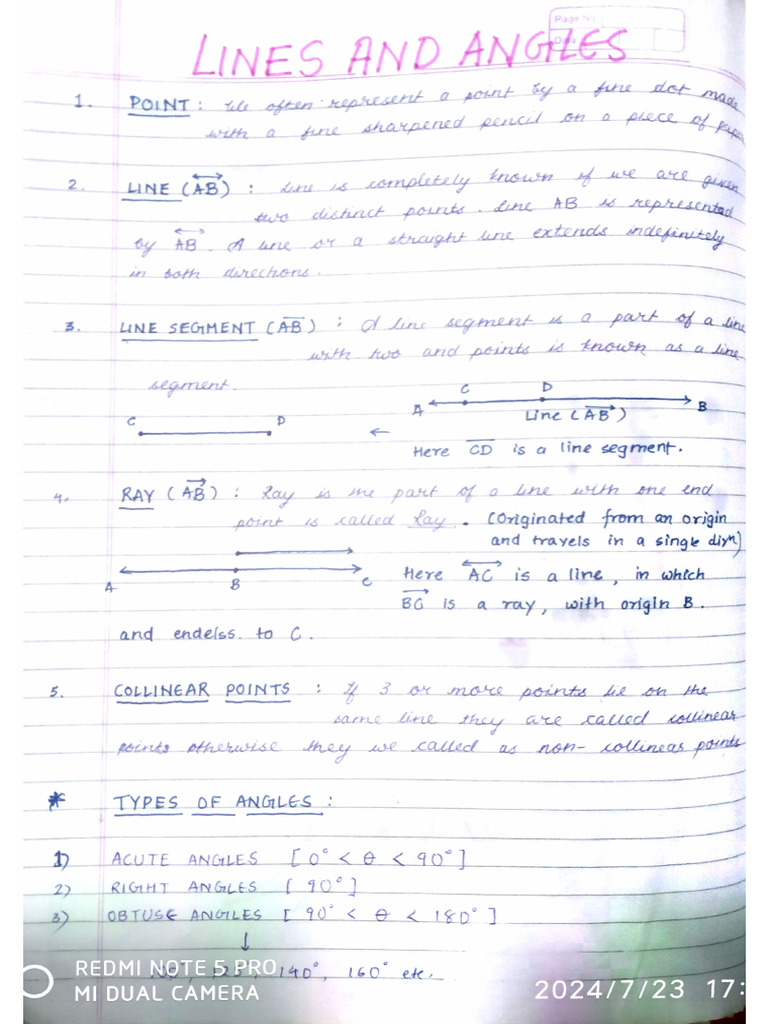 Page No.
Date
LINES AND ANGLES
1. POINT : We often represent a point by a fine dot made
with a fine sharpened pencil on a piece of paper
2. LINE (AB) : Line is completely known if we are given
two distinct points. Line AB is represented
by AB. A line or a straight line extends indefinitely
in both directions.
3. LINE SEGMENT (AB) : A line segment is a part of a line
with two end points is known as a line
segment.
C D
A C D B
Line (AB)
Here CD is a line segment.
4. RAY (AB) : Ray is the part of a line with one end
point is called Ray. (Originated from an origin
and travels in a single dirⁿ)
A B C
Here AC is a line, in which
BC is a ray, with origin B.
and endelss. to C.
5. COLLINEAR POINTS : If 3 or more points lie on the
same line they are called collinear
points otherwise they we called as non-collinear points
* TYPES OF ANGLES :
1) ACUTE ANGLES [0° < θ < 90°]
2) RIGHT ANGLES [90°]
3) OBTUSE ANGLES [90° < θ < 180°]
↓
140°, 160° etc.
REDMI NOTE 5 PRO
MI DUAL CAMERA
2024/7/23 17: